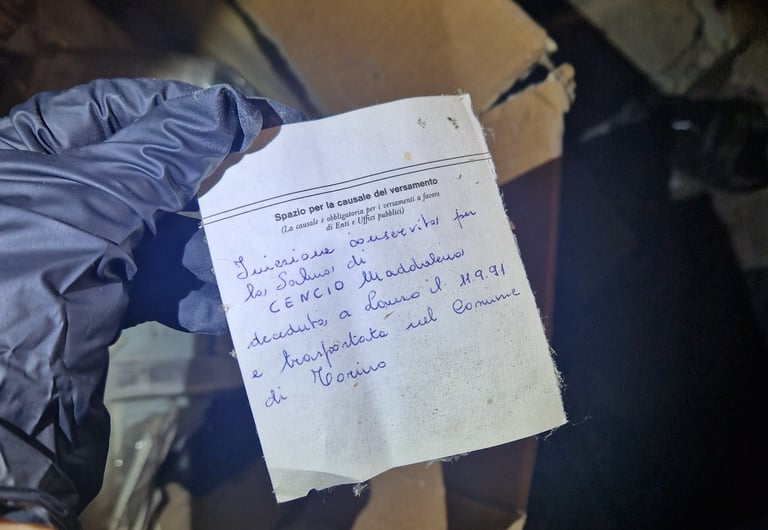 Spazio per la causale del versamento
(La causale è obbligatoria per i versamenti a favore
di Enti e Uffici pubblici)
Iniezione conservita per
la Salma di
CENCIO Maddalena
deceduta a Lauro il 11.9.91
e trasportata nel Comune
di Torino